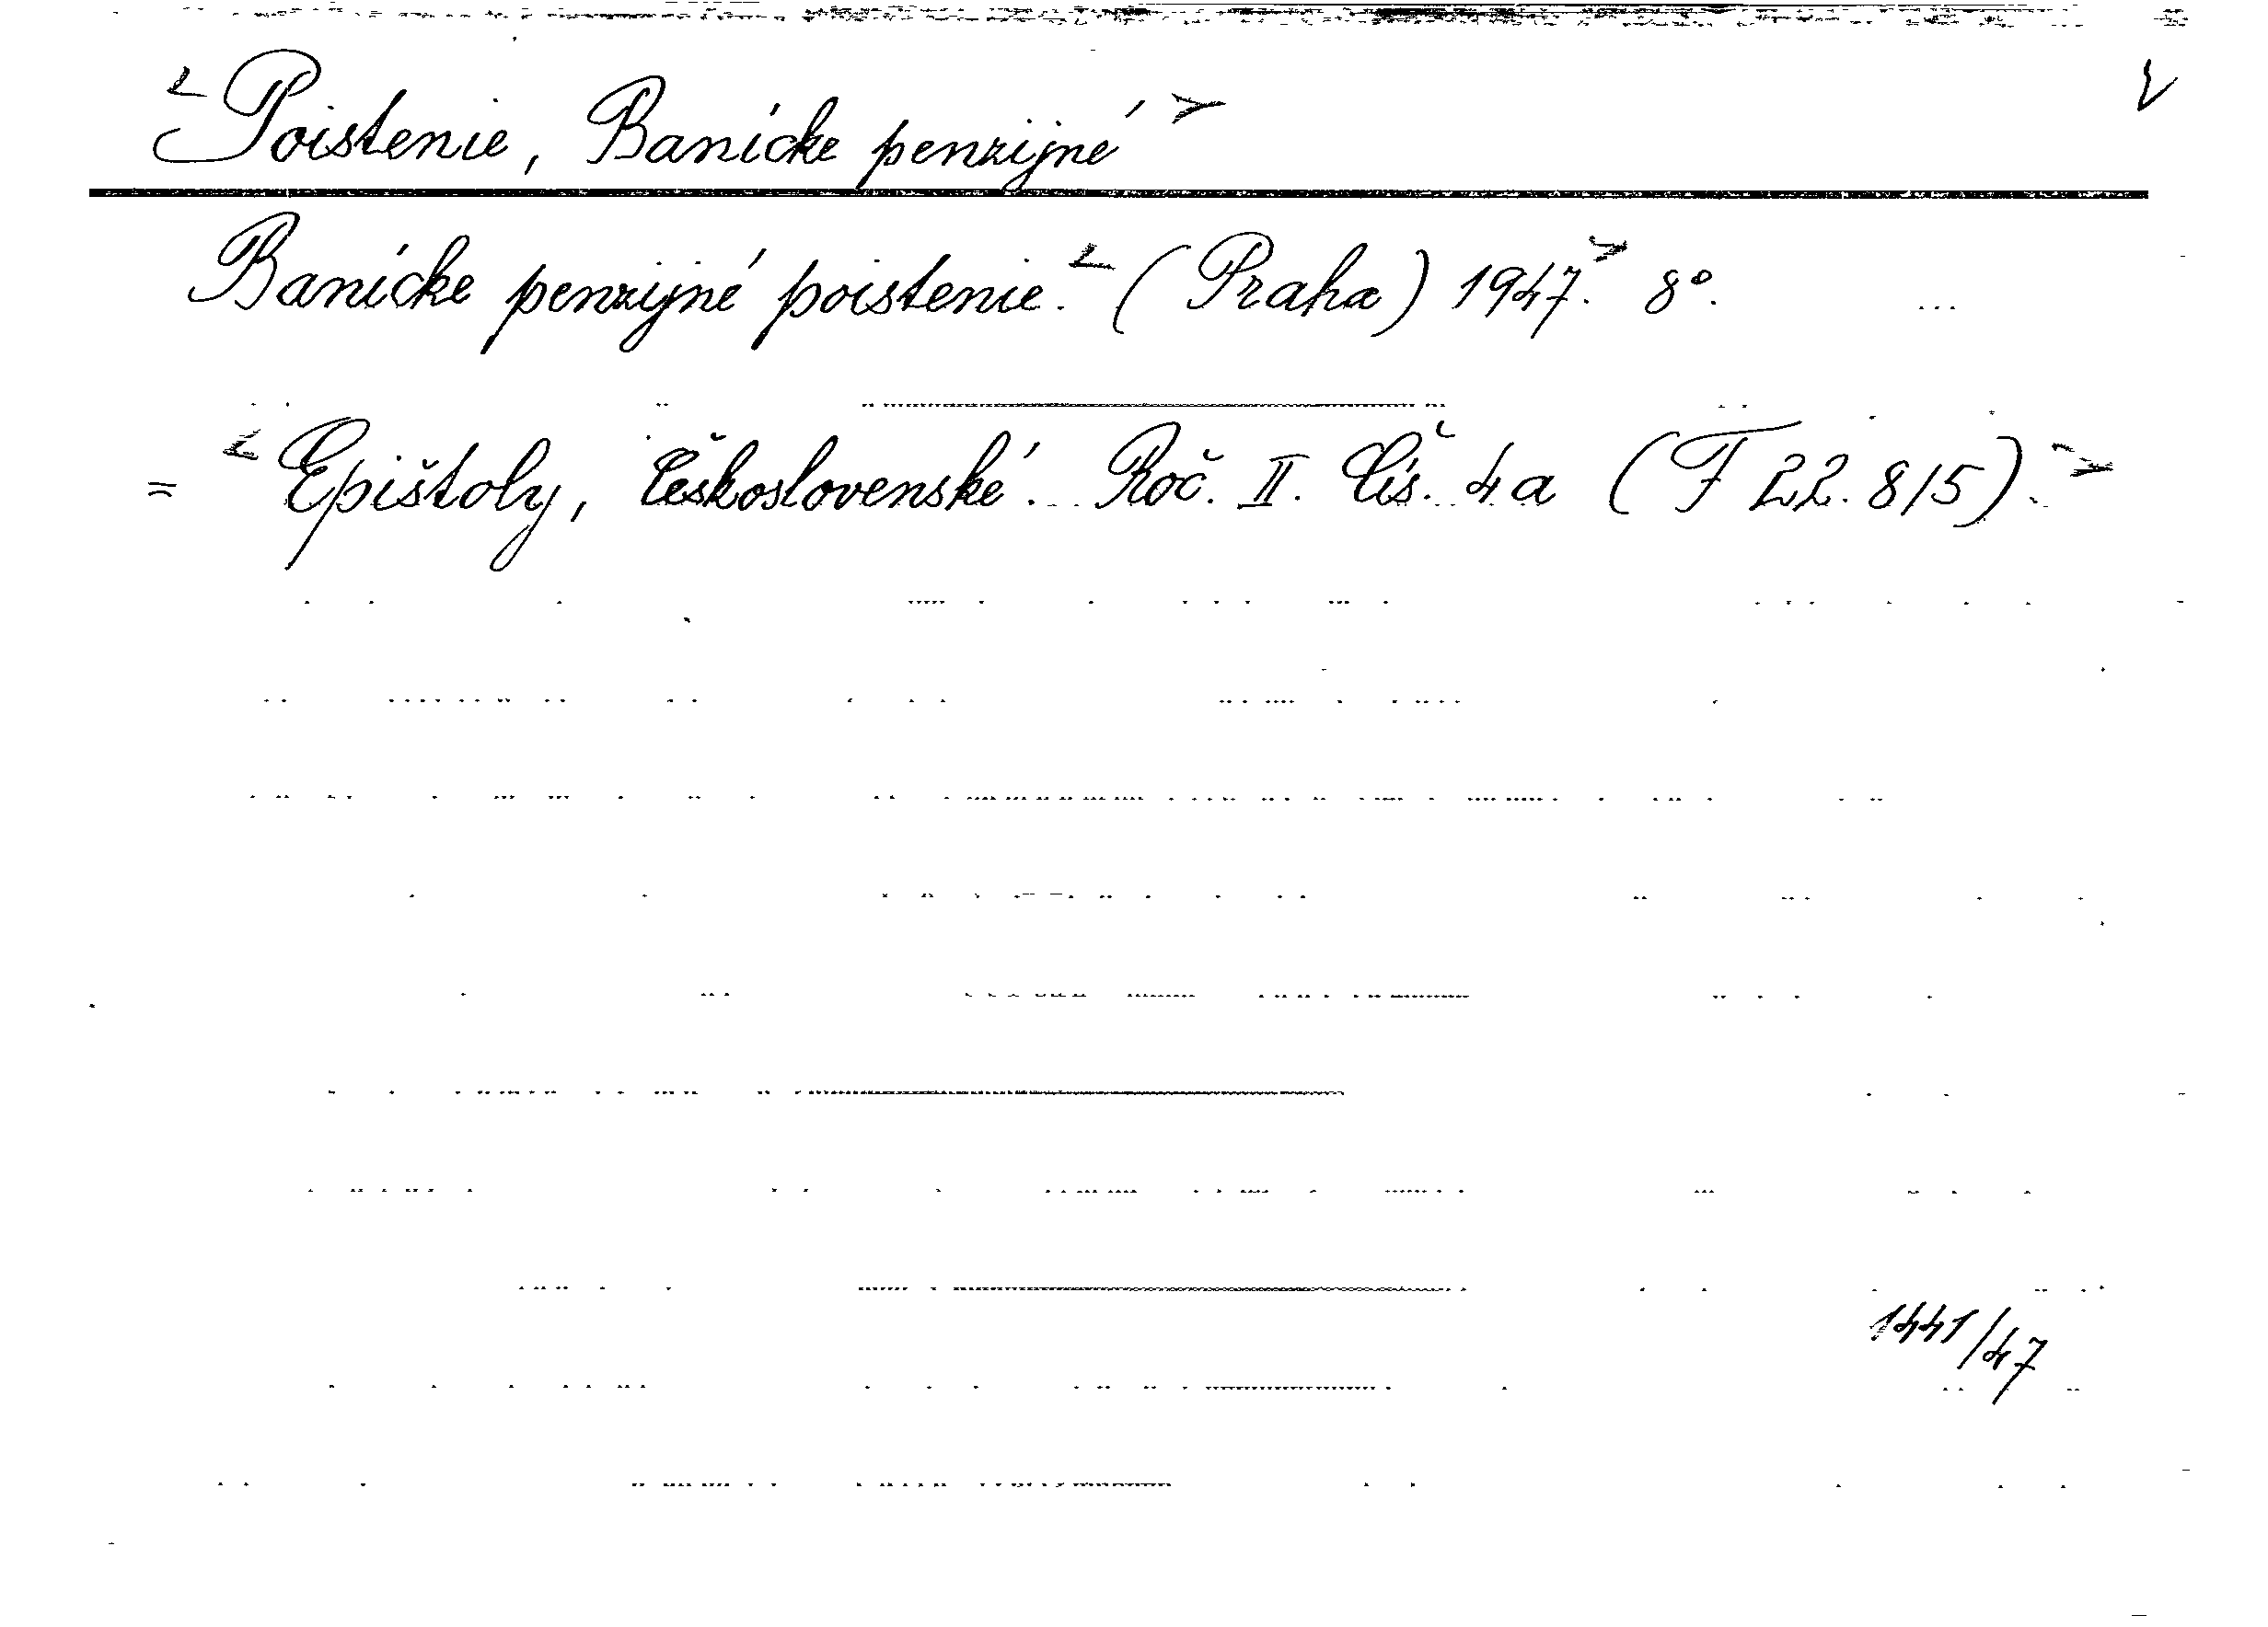 <Poistenie, Banícke penzijné>
Banícke penzijné poistenie. <(Praha) 1947.> 8°.
= <Epištoly, Československé. Roč. II. Čís. 4a (F 22.815).>
1441/47